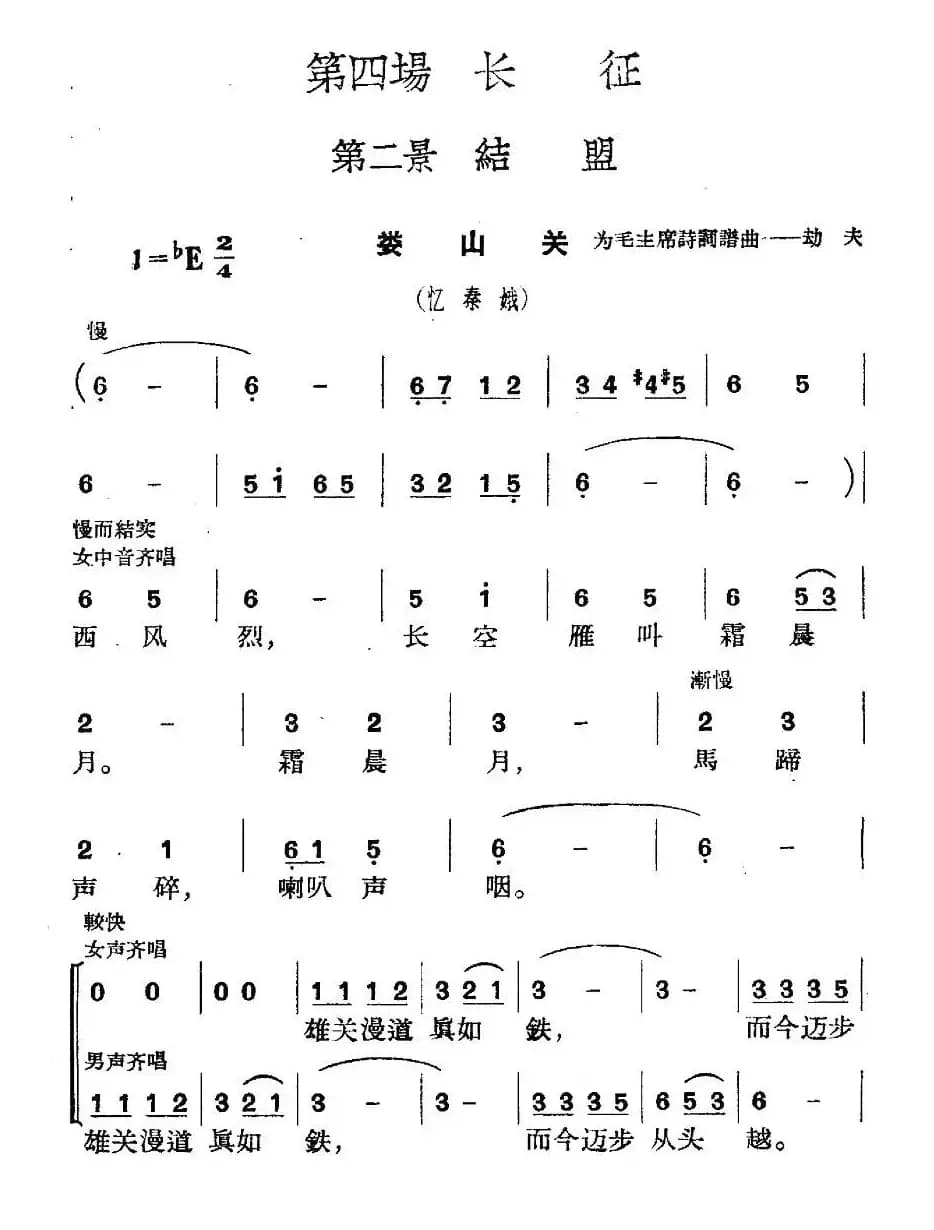 第四場 长 征
第二景 結 盟
1=♭E 2/4 娄 山 关 为毛主席詩詞譜曲——劫 夫
(忆 秦 娥)
慢
(6̣ - | 6̣ - | 6̣ 7̣ 1 2 | 3 4 #4 #5 | 6 5 |
6 - | 5 1̇ 6 5 | 3 2 1 5̣ | 6̣ - | 6̣ - ) |
慢而結实
女中音齐唱
6 5 | 6 - | 5 1̇ | 6 5 | 6 5 3 |
西 风 烈, 长 空 雁 叫 霜 晨
漸慢
2 - | 3 2 | 3 - | 2 3 |
月。 霜 晨 月, 馬 蹄
2 1 | 6̣ 1 5̣ | 6̣ - | 6̣ - |
声 碎, 喇叭 声 咽。
較快
女声齐唱
0 0 | 0 0 | 1 1 1 2 | 3 2 1 | 3 - | 3 - | 3 3 3 5 |
雄关漫道 眞如 鉄, 而今迈步
男声齐唱
1 1 1 2 | 3 2 1 | 3 - | 3 - | 3 3 3 5 | 6 5 3 | 6 - |
雄关漫道 眞如 鉄, 而今迈步 从头 越。